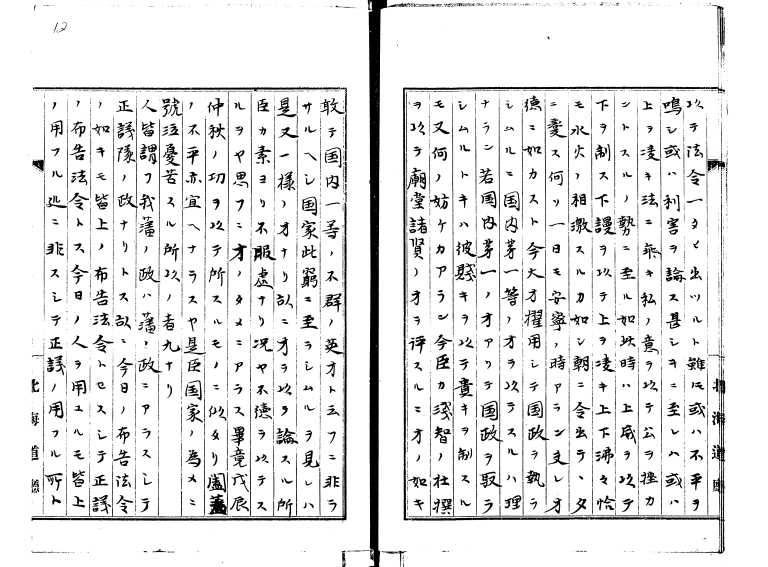 以テ法令一タヒ出ツルト雖モ或ハ不平ヲ
鳴シ或ハ利害ヲ論ス甚シキニ至レハ或ハ
上ヲ凌キ法ニ乖キ私ノ意ヲ以テ公ヲ挫カ
ントスルノ勢ニ至ル如此時ハ上威ヲ以テ
下ヲ制ス下謾ヲ以テ上ヲ凌キ上下沸々恰
モ水火ノ相激スルカ如シ朝ニ令出テヽタ
ニ変ス何ソ一日モ安寧ノ時アラン夫レオ
徳ニ如カスト今大才擢用シテ国政ヲ執ラ
シムルニ国内第一等ノオヲ以テスルハ理
ナラン若国内第一ノオアリテ国政ヲ取ラ
シムルトキハ彼賤キヲ以テ貴キヲ制スル
モ又何ノ妨ケカアラン今臣カ浅智ノ杜撰
ヲ以テ廟堂諸賢ノオヲ評スルニオノ如キ
北海道廳
12
敢テ国内一等ノ不群ノ英才ト云フニ非ラ
サルヘシ国家此窮ニ至ラシムルヲ見レハ
是又一様ノオナリ故ニオヲ以テ論スル所
臣カ素ヨリ不服虚ナリ况ヤ不徳ヲ以テス
ルヲヤ思フニオノタメニアラス畢竟戊辰
仲秋ノ功ヲ以テ所スルモノニ似タリ闔藩
ノ不平亦宜ヘナラスヤ是臣国家ノ為メニ
號泣憂苦スル所以ノ者九ナリ
人皆謂フ我藩ノ政ハ藩ノ政ニアラスシテ
正議隊ノ政ナリトス故ニ今日ノ布告法令
ノ如キモ皆上ノ布告法令トセスシテ正議
ノ布告法令トス今日ノ人ヲ用ユルモ皆上
ノ用フル処ニ非スシテ正議ノ用フル所ト
北海道廳